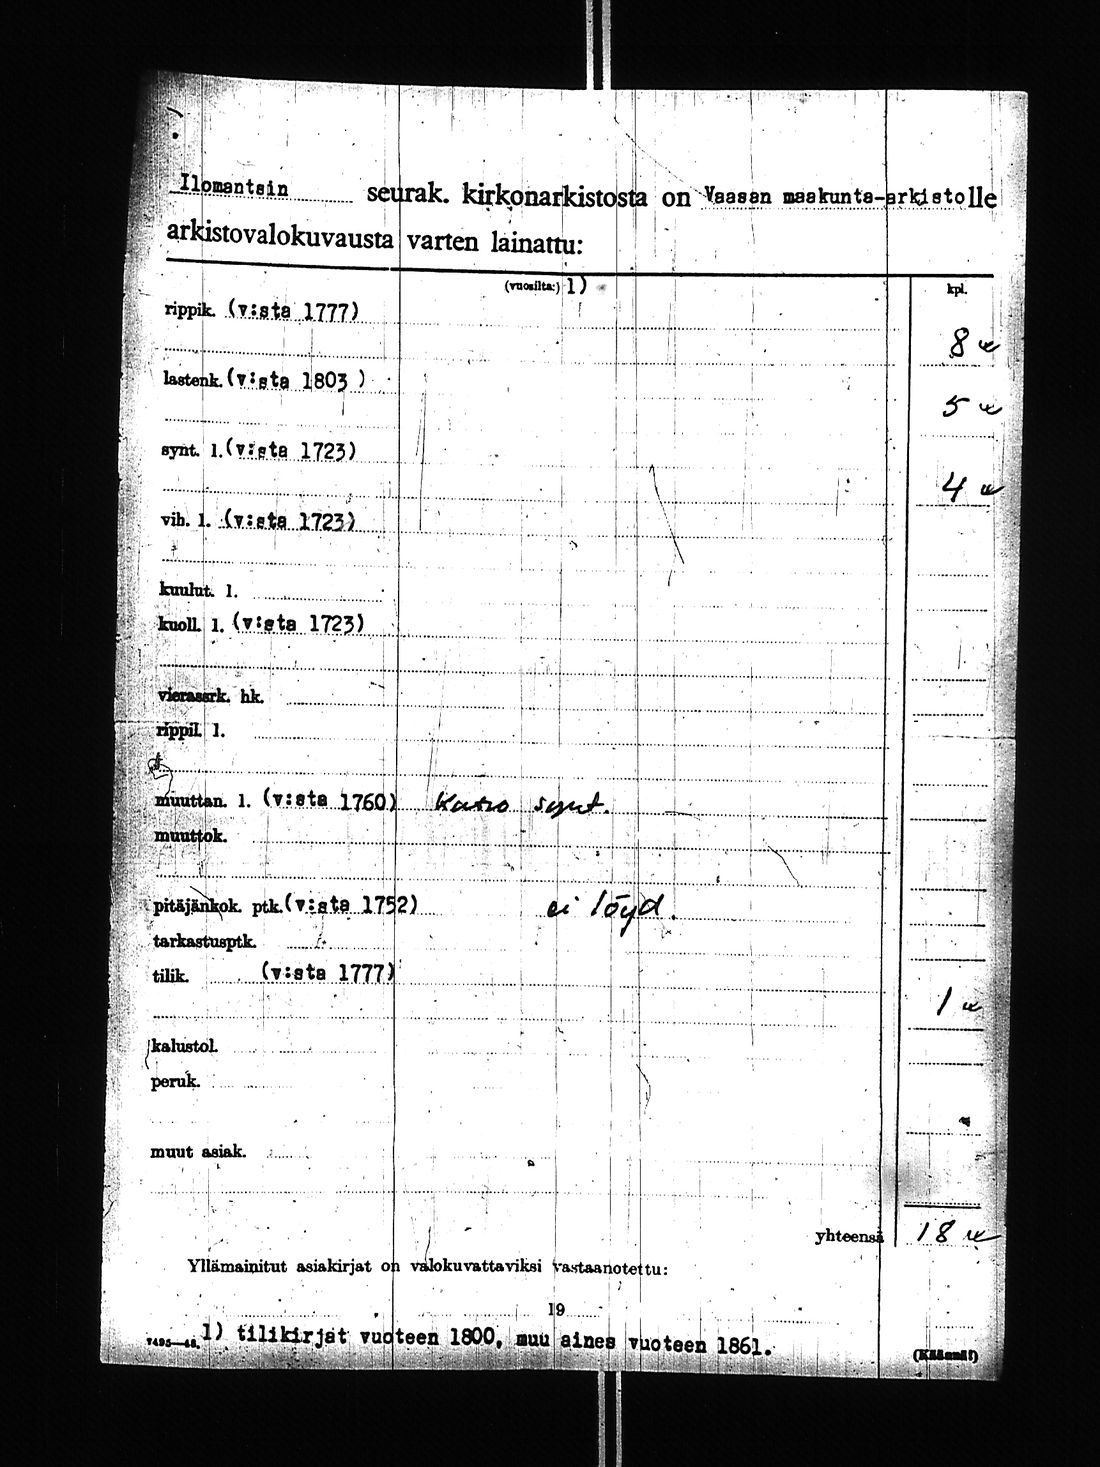 Ilomantsin seurak. kirkonarkistosta on Vaasan maakunta-arkistolle
arkistovalokuvausta varten lainattu:
(vuosilta:) 1) kpl.
rippik. (v:sta 1777)
8
lastenk. (v:sta 1803 )
5
synt. l. (v:sta 1723)
4
vih. l. (v:sta 1723)
kuulut. l.
kuoll. l. (v:sta 1723)
vierassrk. hk.
rippil. l.
muuttan. l. (v:sta 1760) Katso synt.
muuttok.
pitäjänkok. ptk. (v:sta 1752) ei löyd.
tarkastusptk.
tilik. (v:sta 1777)
1
kalustol.
peruk.
muut asiak.
yhteensä 18
Yllämainitut asiakirjat on valokuvattaviksi vastaanotettu:
19
7495—48. 1) tilikirjat vuoteen 1800, muu aines vuoteen 1861.
(Käännä!)